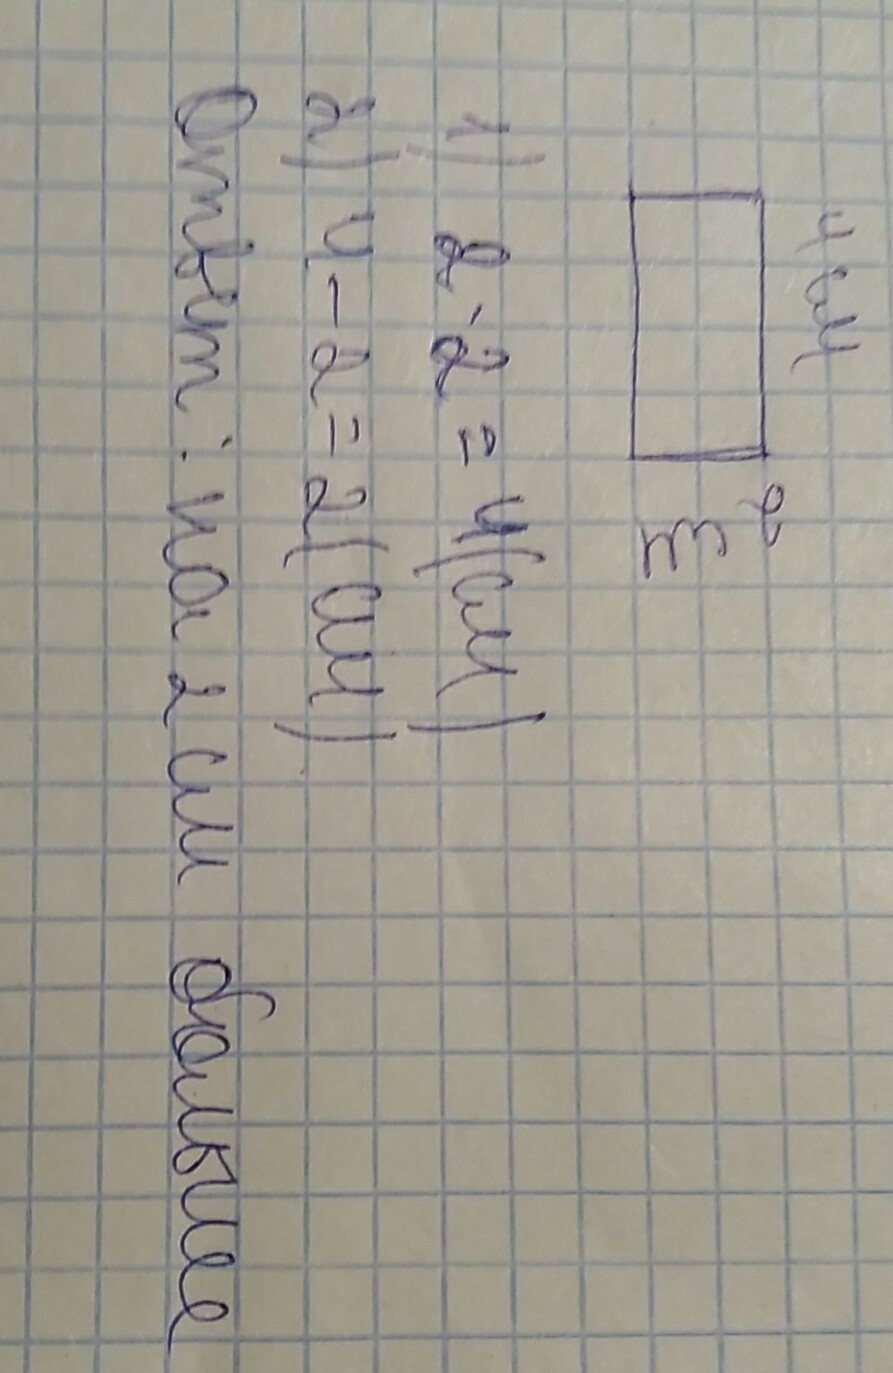 4 см
2 см
1) 2·2=4(см)
2) 4-2=2(см)
Ответ: на 2 см больше